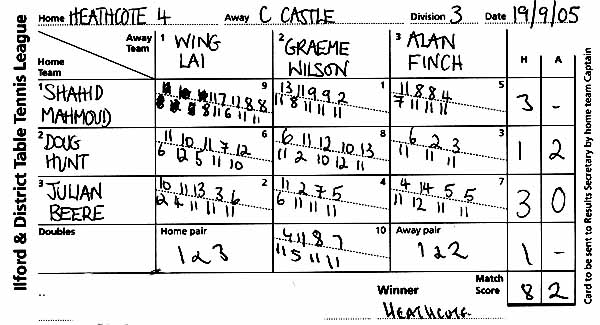 Ilford & District Table Tennis League
Home HEATHCOTE 4 Away C CASTLE Division 3 Date 19/9/05
Away Team 1 WING LAI 2 GRAEME WILSON 3 ALAN FINCH H A
Home Team
1 SHAHID MAHMOUD 9 1 5 3 -
11 7 11 8 8 13 11 9 9 2 11 8 8 4
8 11 6 11 11 11 8 11 11 11 7 11 11 11
2 DOUG HUNT 6 8 3 1 2
11 10 11 7 12 6 11 12 10 13 6 2 3
6 12 5 11 10 11 2 10 12 11 11 11 11
3 JULIAN BEERE 2 4 7 3 0
10 11 13 3 6 11 2 7 5 4 14 5 5
12 4 11 11 11 6 11 11 11 11 12 11 11
Doubles Home pair 10 Away pair
1 & 3 4 11 8 7 1 & 2 1 -
11 5 11 11
Winner Match Score 8 2
HEATHCOTE
Card to be sent to Results Secretary by home team Captain